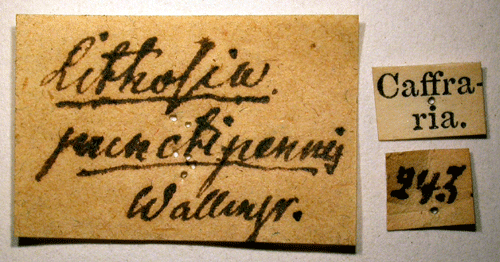 Lithosia.
punctipennis
Wallengr.
Caffra-
ria.
243